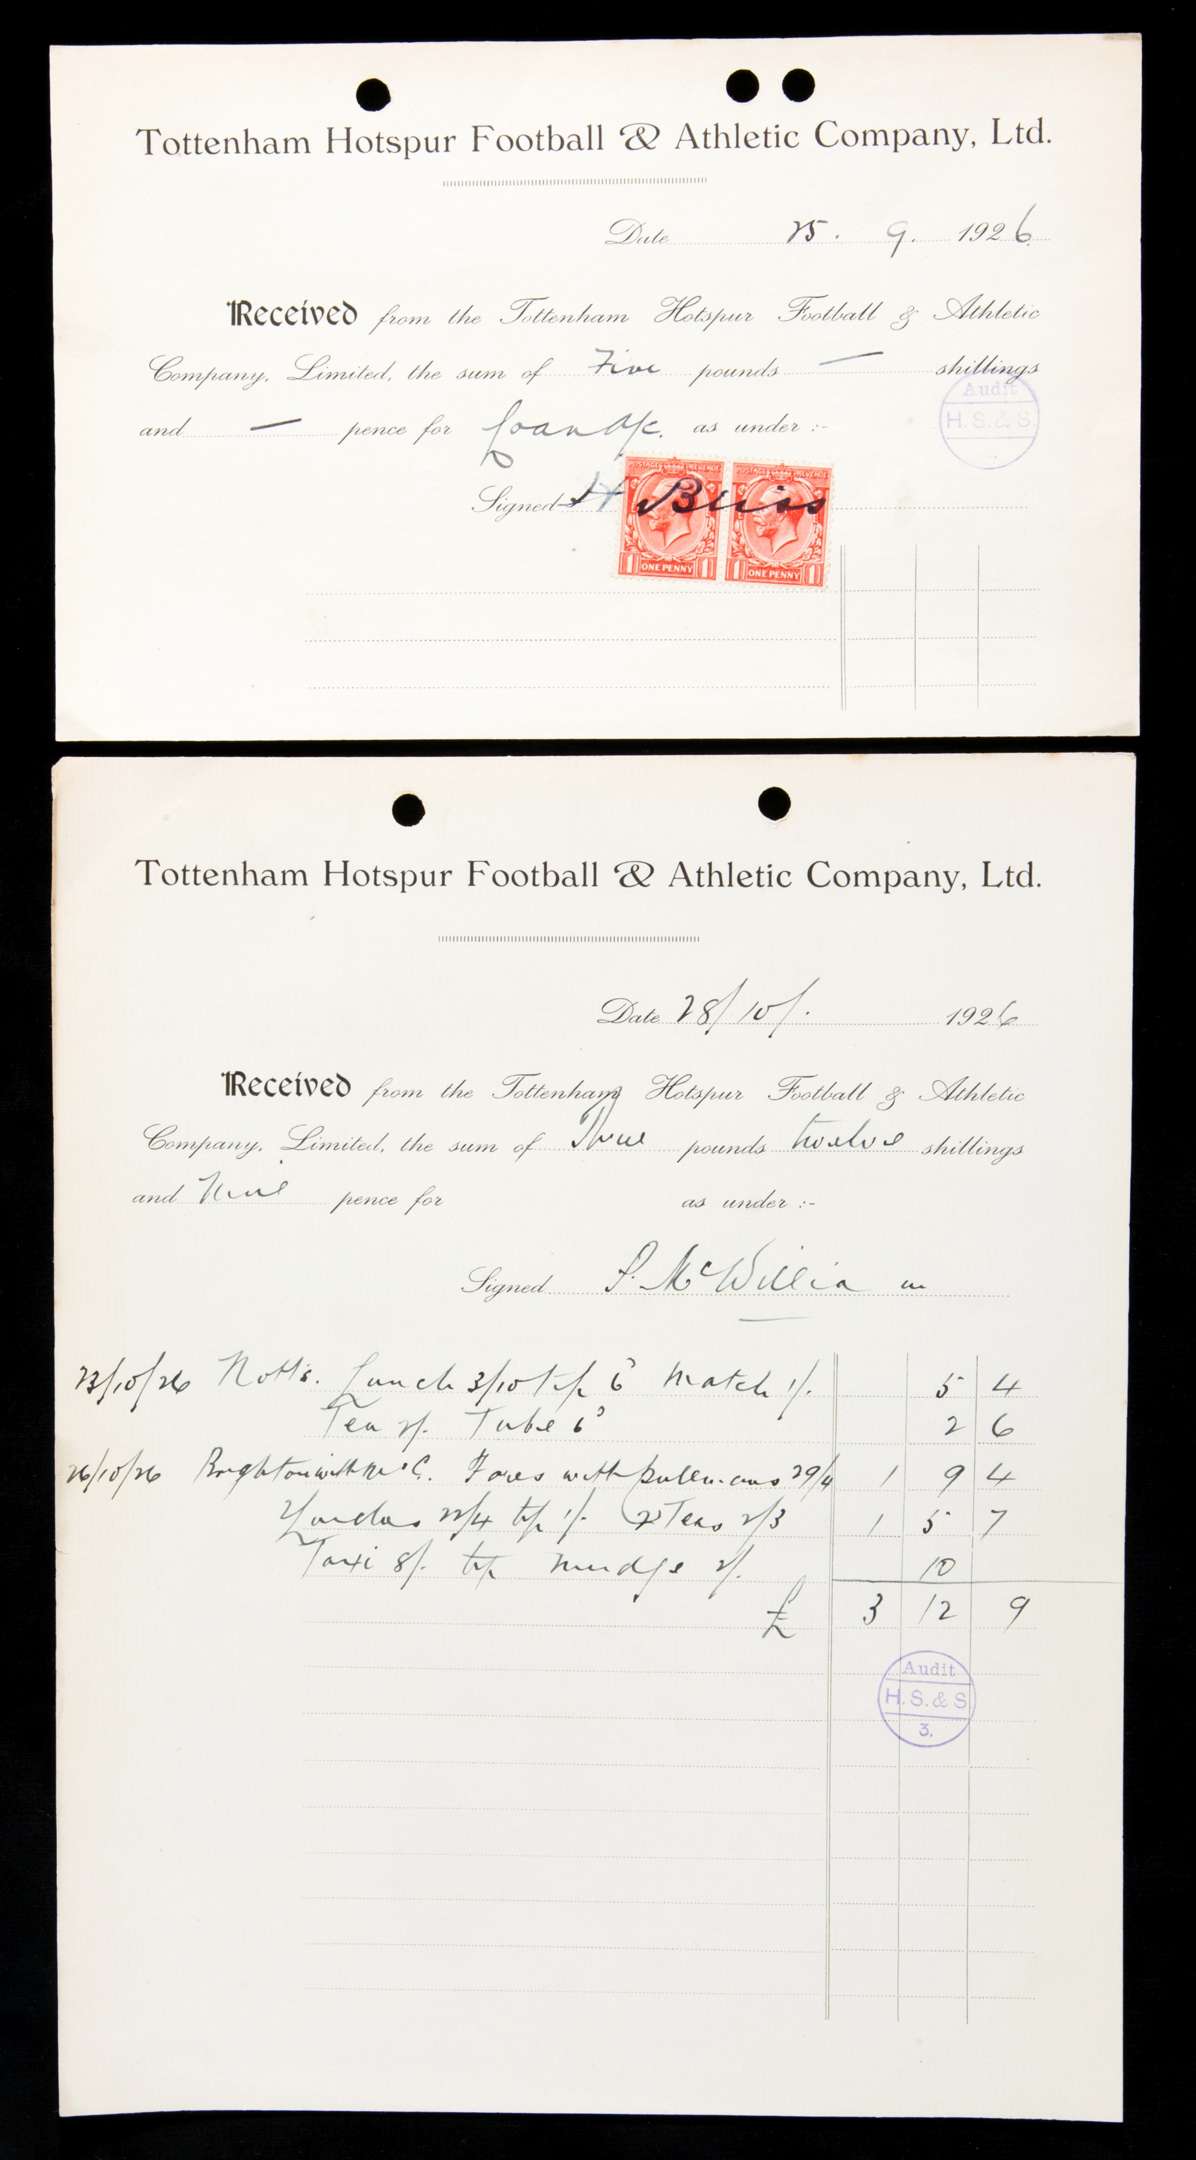 Tottenham Hotspur Football & Athletic Company, Ltd.
Date 25. 9. 1926
Received from the Tottenham Hotspur Football & Athletic
Company, Limited, the sum of Five pounds — shillings
and — pence for Loan A/c. as under :-
Audit
H. S. & S.
Signed H Bliss
POSTAGE REVENUE POSTAGE REVENUE
1 ONE PENNY 1 1 ONE PENNY 1
Tottenham Hotspur Football & Athletic Company, Ltd.
Date 28/10/. 1926
Received from the Tottenham Hotspur Football & Athletic
Company, Limited, the sum of Three pounds twelve shillings
and Nine pence for as under :-
Signed P. McWilliam
23/10/26 Notts. Lunch 3/10 tip 6d Match 1/. 5 4
Tea 2/. Tube 6d 2 6
26/10/26 Brighton with Mr C. Fares with Pullmans 29/4 1 9 4
Lunches 22/4 tip 1/. 2 Teas 2/3 1 5 7
Taxi 8/. tip 2/. 10
£ 3 12 9
Audit
H. S. & S.
3.